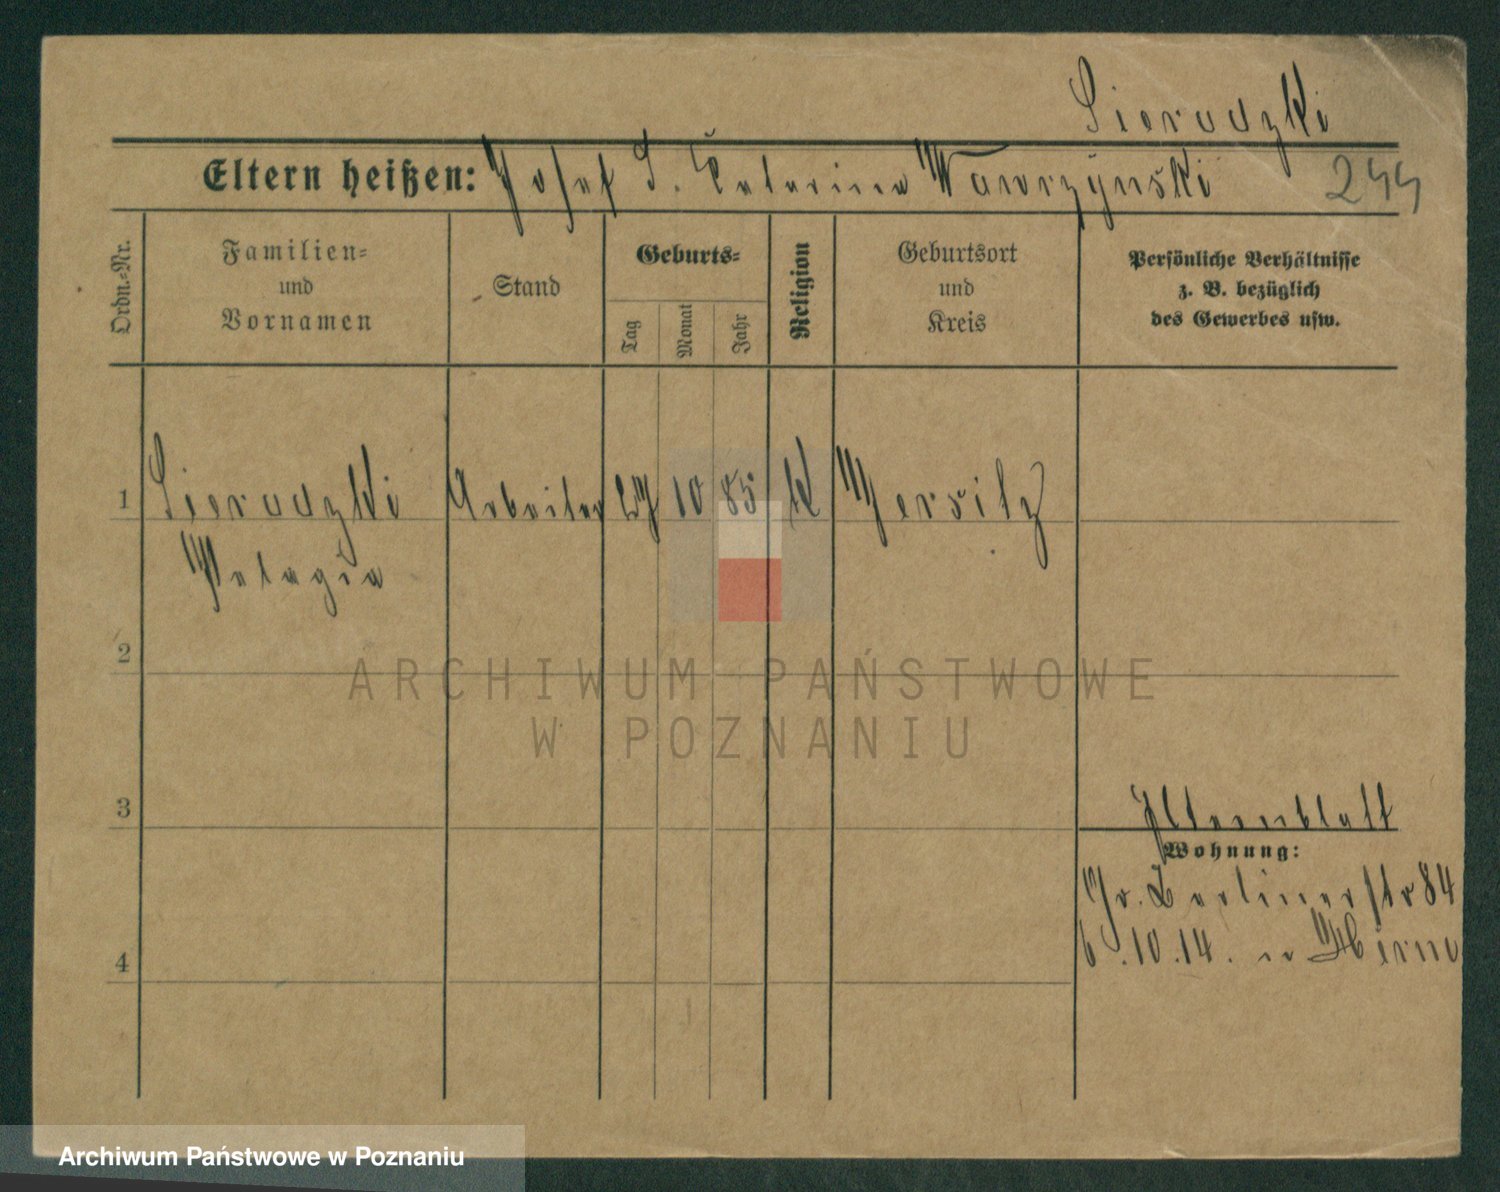 Sieradzki
Eltern heißen: Josef S. Katarina Wawrzynski
244
Ordn.-Nr.
Familien-
und
Vornamen
Stand
Geburts-
Tag
Monat
Jahr
Religion
Geburtsort
und
Kreis
Persönliche Verhältnisse
z. B. bezüglich
des Gewerbes usw.
1 Sieradzki Arbeiter 27 10 85 K Jersitz
Pelagia
2
ARCHIWUM PAŃSTWOWE
W POZNANIU
3
Elternblatt
Wohnung:
Gr. Berlinerstr 84
6.10.14. n
4
Archiwum Państwowe w Poznaniu